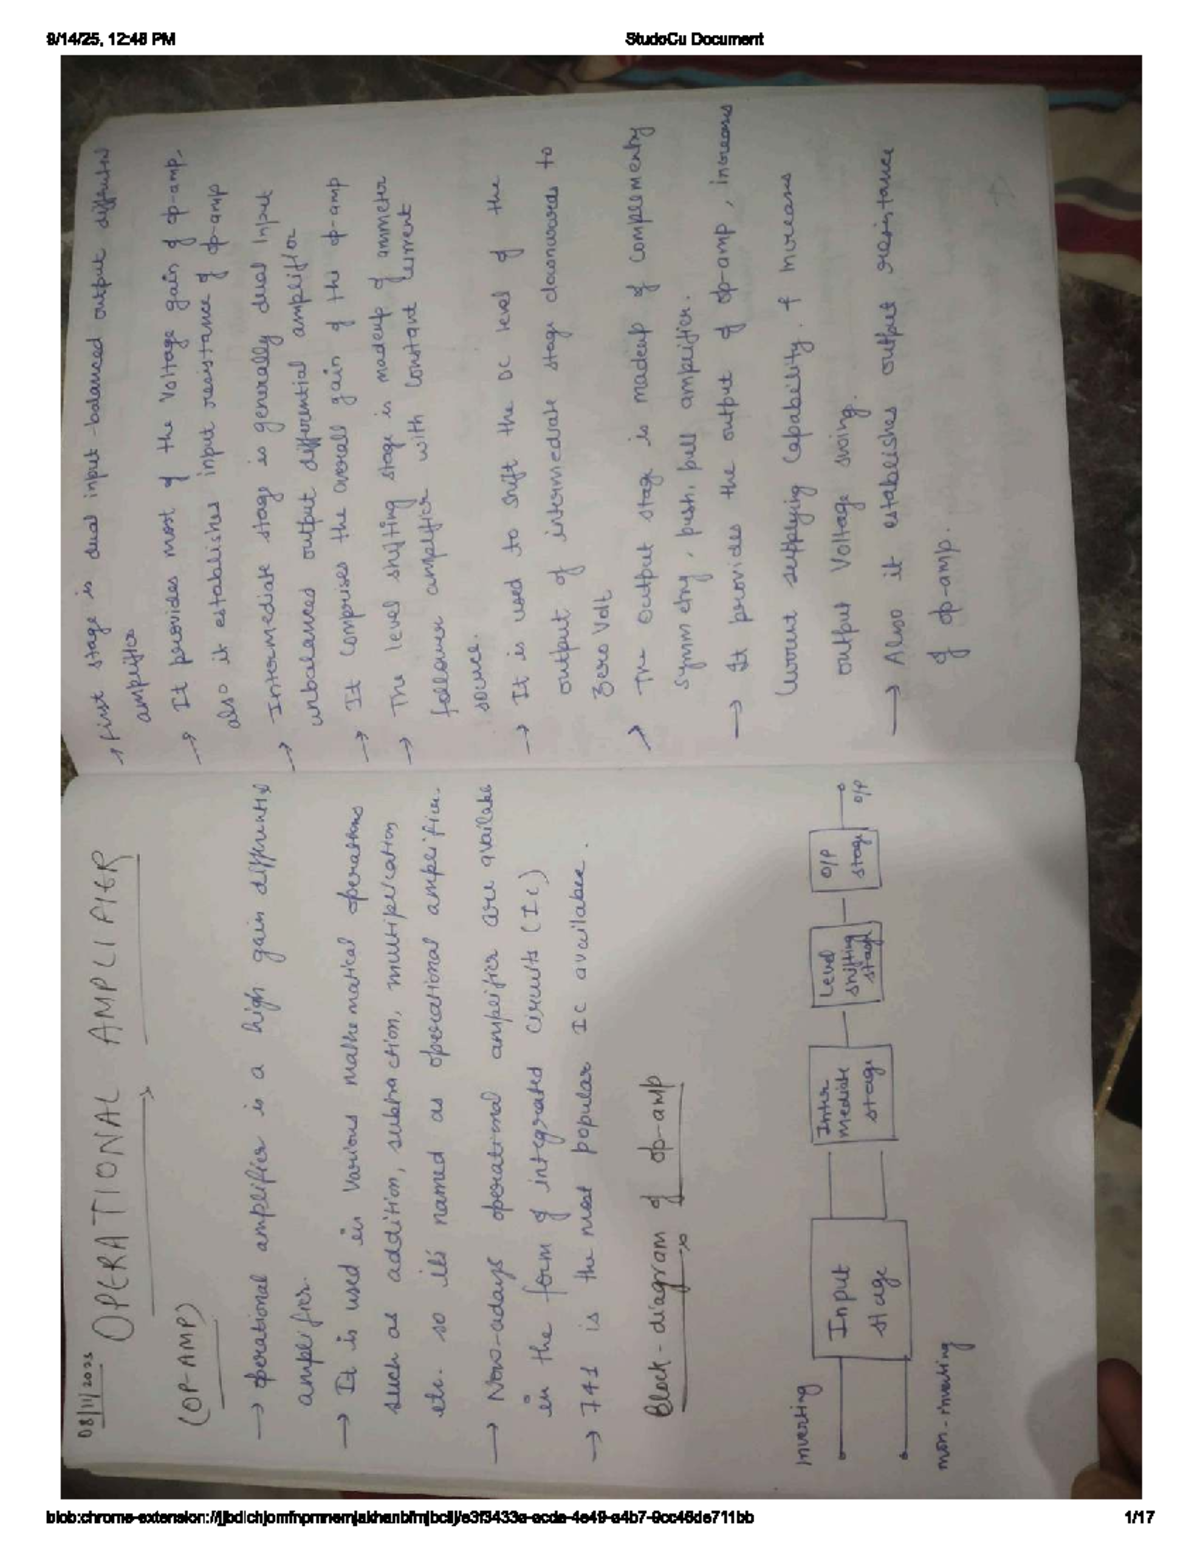 9/14/25, 12:48 PM
StudoCu Document
08/11/2023
OPERATIONAL AMPLIFIER
(OP-AMP)
→ operational amplifier is a high gain
amplifier.
→ It is used in various mathematical operations
such as addition, subtraction, multiplication
etc. so it's named as operational amplifier.
→ Now-adays operational amplifier are available
in the form of integrated circuits (Ic)
→ 741 is the most popular IC available.
Block-diagram of op-amp
Inverting
non-inverting
Input
stage
Inter
mediate
stage
Level
shifting
stage
O/P
stage
O/P
→ First stage is dual input balanced output
amplifier
→ It provides most of the voltage gain of op-amp,
also it establishes input resistance of op-amp
→ Intermediate stage is generally dual input
unbalanced output differential amplifier
→ It comprises the overall gain of the op-amp
→ The level shifting stage is madeup of
follower amplifier with constant current
source.
→ It is used to shift the DC level of the
output of intermediate stage downwards to
zero volt
→ The output stage is madeup of
symmetry, push, pull amplifier.
→ It provides the output of op-amp, increases
supplying capability. & increases
output voltage swing.
→ Also it establishes output resistance
of op-amp.
blob:chrome-extension://
1/17